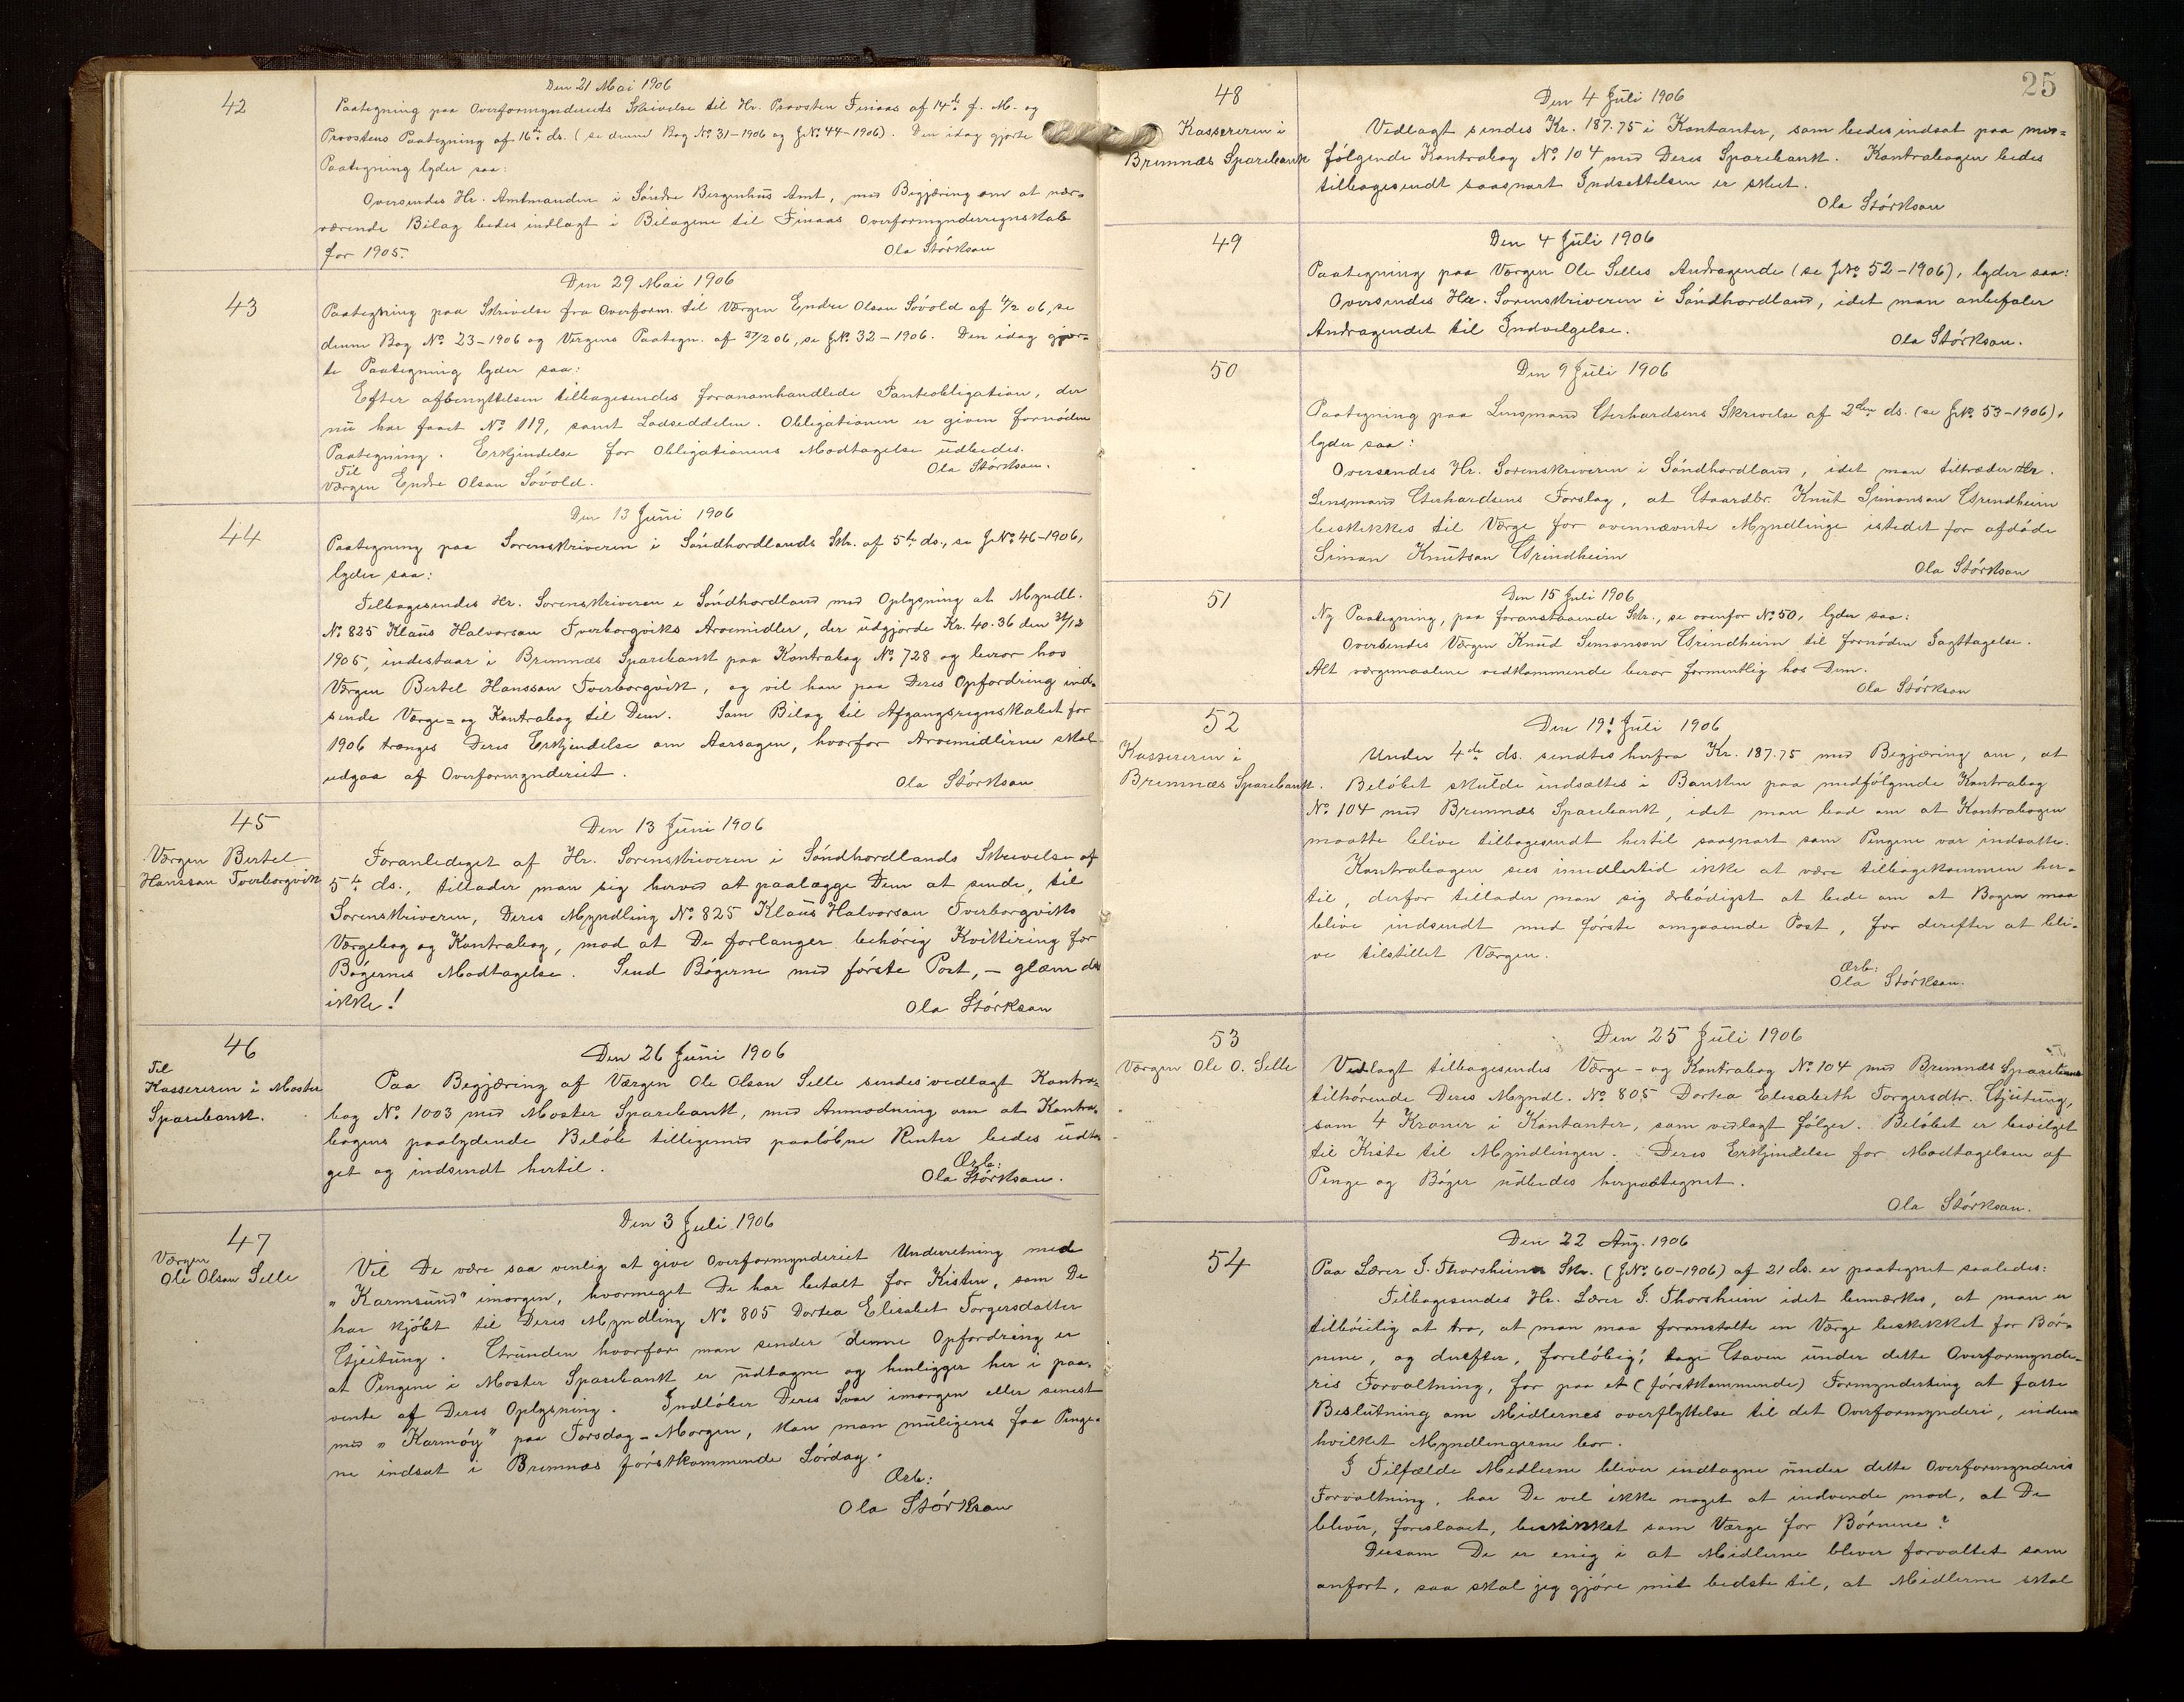 42
Den 21 Mai 1906
Paategning paa Overformynderiets Skrivelse til Hr. Provsten Finaas af 14de f. M. og
Provstens Paategning af 16de ds. (se denne Bog No. 31-1906 og JNo. 44-1906). Den idag gjorte
Paategning lyder saa:
Oversendes Hr. Amtmanden i Søndre Bergenhus Amt, med Begjæring om at nær-
værende Bilag bedes indlagt i Bilagene til Finaas Overformynderregnskab
for 1905.
Ola Størksøn
43
Den 29 Mai 1906
Paategning paa Skrivelse fra Overform. til Værgen Endre Olson Søvold af 4/2 06, se
denne Bog No. 23-1906 og Vergens Paategn. af 27/2 06, se JNo. 32-1906. Den idag gjor-
te Paategning lyder saa:
Efter afbenyttelsen tilbagesendes foranomhandlede Panteobligation, der
nu har faaet No. 119, samt Lodseddelen. Obligationen er given fornøden
Paategning. Erkjendelse for Obligationens Modtagelse udbedes.
Til
Værgen Endre Olson Søvold.
Ola Størkson.
44
Den 13 Juni 1906
Paategning paa Sorenskriveren i Søndhordlands Skr. af 5te ds., se JNo. 46-1906,
lyder saa:
Tilbagesendes Hr. Sorenskriveren i Søndhordland med Oplysning at Myndl.
No. 825 Klaus Halvorson Tverborgviks Arvemidler, der udgjorde Kr. 40.36 den 31/12
1905, indestaar i Bremnæs Sparebank paa Kontrabog No. 728 og beror hos
Værgen Bertel Hansson Tverborgvik, og vil han paa Deres Opfordring ind-
sende Værge= og Kontrabog til Dem. Som Bilag til Afgangsregnskabet for
1906 trænges Deres Erkjendelse om Aarsagen, hvorfor Arvemidlerne skal
udgaa af Overformynderiet.
Ola Størkson
45
Værgen Bertel
Hansson Tverborgvik
Den 13 Juni 1906
Foranlediget af Hr. Sorenskriveren i Søndhordlands Skrivelse af
5te ds., tillader man sig herved at paalægge Dem at sende, til
Sorenskriveren, Deres Myndling No. 825 Klaus Halvorson Tverborgviks
Værgebog og Kontrabog, mod at De forlanger behørig Kvittering for
Bøgernes Modtagelse. Send Bøgerne med første Post, - glem det
ikke!
Ola Størkson
46
Til
Kassereren i Moster
Sparebank.
Den 26 Juni 1906
Paa Begjæring af Værgen Ole Olson Selle sendes vedlagt Kontra-
bog No. 1003 med Moster Sparebank, med Anmodning om at Kontra-
bogens paalydende Beløb tilligemed paaløbne Renter bedes udta-
get og indsendt hertil.
Ærb:
Ola Størkson.
47
Værgen
Ole Olson Selle
Den 3 Juli 1906
Vil De være saa venlig at give Overformynderiet Underretning med
"Karmsund" imorgen, hvormeget De har betalt for Kisten, som De
har kjøbt til Deres Myndling No. 805 Dortea Elisabet Torgersdatter
Gjeitung. Grunden hvorfor man sender denne Opfordring er
at Pengene i Moster Sparebank er udtagne og henligger her i paa-
vente af Deres Oplysning. Indløber Deres Svar imorgen eller senest
med "Karmøy" paa Torsdag-Morgen, kan man muligens faa Penge-
ne indsat i Bremnæs førstkommende Lørdag.
Ærb:
Ola Størkson
25
48
Kassereren i
Bremnæs Sparebank
Den 4 Juli 1906
Vedlagt sendes Kr. 187.75 i Kontanter, som bedes indsat paa med-
følgende Kontrabog No. 104 med Deres Sparebank. Kontrabogen bedes
tilbagesendt saasnart Indsettelsen er skeet.
Ola Størkson
49
Den 4 Juli 1906
Paategning paa Værgen Ole Selles Andragende (se JNo. 52-1906), lyder saa:
Oversendes Hr. Sorenskriveren i Søndhordland, idet man anbefaler
Andragendet til Indvelgelse.
Ola Størkson.
50
Den 9 Juli 1906
Paategning paa Lensmand Gerhardsens Skrivelse af 2den ds. (se JNo. 53-1906),
lyder saa:
Oversendes Hr. Sorenskriveren i Søndhordland, idet man tiltræder Hr.
Lensmand Gerhardsens Forslag, at Gaardbr. Knut Simonson Grindheim
beskikkes til Værge for ovennævnte Myndlinge istedet for afdøde
Simon Knutson Grindheim
Ola Størkson
51
Den 15 Juli 1906
Ny Paategning, paa foranstaaende Skr., se ovenfor No. 50, lyder saa:
Oversendes Værgen Knud Simonson Grindheim til fornøden Iagttagelse.
Alt værgemaalene vedkommende beror formentlig hos Dem.
Ola Størkson
52
Kassereren i
Bremnæs Sparebank.
Den 19: Juli 1906
Under 4de ds. sendtes herfra Kr. 187.75 med Begjæring om, at
Beløbet skulde indsættes i Banken paa medfølgende Kontrabog
No. 104 med Bremnæs Sparebank, idet man bad om at Kontrabogen
maatte blive tilbagesendt hertil saasnart som Pengene var indsatte.
Kontrabogen sees imidlertid ikke at være tilbagekommen her-
til, derfor tillader man sig ærbødigst at bede om at Bogen maa
blive indsendt med første omgaaende Post, for derefter at bli-
ve tilstillet Værgen.
Ærb:
Ola Størkson.
53
Værgen Ole O. Selle
Den 25 Juli 1906
Vedlagt tilbagesendes Værge- og Kontrabog No. 104 med Bremnæs Sparebank
tilhørende Deres Myndl. No. 805 Dortea Elisabeth Torgersdtr. Gjeitung,
som 4 Kroner i Kontanter, som vedlagt følger. Beløbet er bevilget
til Kiste til Myndlingen. Deres Erkjendelse for Modtagelsen af
Penge og Bøger udbedes herpaategnet.
Ola Størkson.
54
Den 22 Aug. 1906
Paa Lærer J. Thorsheims Skr. (JNo. 60-1906) af 21 ds. er paategnet saaledes:
Tilbagesendes Hr. Lærer J. Thorsheim idet bemærkes, at man er
tilbøielig at tro, at man maa foranstalte en Værge beskikket for Bør-
nene, og derefter, foreløbig, tage Gaven under dette Overformynde-
ris Forvaltning, for paa et (førstkommende) Formynderting at fatte
Beslutning om Midlernes overflyttelse til det Overformynderi, inden
hvilket Myndlingerne bor.
I Tilfælde Midlerne bliver indtagne under dette Overformynderis
Forvaltning, har De vel ikke noget at indvende mod, at De
bliver, foreslaaet, beskikket som Værge for Børnene?
Dersom De er enig i at Midlerne bliver forvaltet som
anført, saa skal jeg gjøre mit bedste til, at Midlerne skal